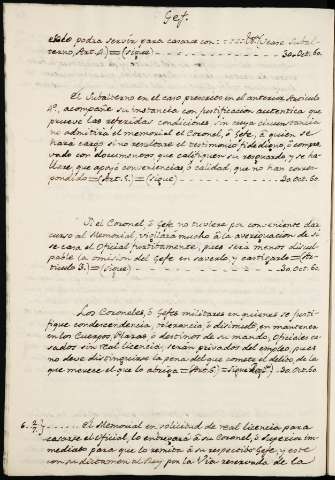 Gef.
esado podra servir para casarse con: - - - - (Vease Subal-
terno, Art. 4.) = (Sigue) - - - - - 30. Oct. 60.
El Subalterno en el caso prevenido en el anterior Articulo
4º, acompañe su instancia con justificacion autentica que
prueve las referidas condiciones, sin cuya circunstancia
no admitirá el memorial el Coronel, ó Gefe, á quien se
hará cargo si no resultare el testimonio fidedigno, ó compro-
vado con documentos que califiquen su resguardo y se ha-
llare, que apoyó conveniencias ó calidad, que no han corres-
pondido = (Art. 5.) = (Sigue) - - - - - 30. Oct. 60.
Si el Coronel, ó Gefe no tuviere por conveniente dar
curso al Memorial, vigilará mucho á la averiguacion de si
se casa el Oficial furtivamente, pues será menos discul-
pable la omision del Gefe en saverlo y castigarlo = (Ar-
ticulo 3.) = (Sigue) - - - - - 30. Oct. 60.
Los Coroneles, ó Gefes militares en quienes se justi-
fique condescendencia, tolerancia, ó disimulo, en mantener
en los Cuerpos, Plazas, ó destinos de su mando, Oficiales ca-
sados sin real licencia, serán privados del empleo, pues
no deve distinguirse la pena del que comete el delito de la
que merece el que lo abriga = (Art. 6.) = (Sigue) 30. Oct. 60.
6. 2/7.} - - - - El Memorial en solicitud de real licencia para
casarse el Oficial, lo entregará á su Coronel, ó Superior in-
mediato para que lo remita á su respectivo Gefe, y este
con su dictamen al Rey por la Via reservada de la